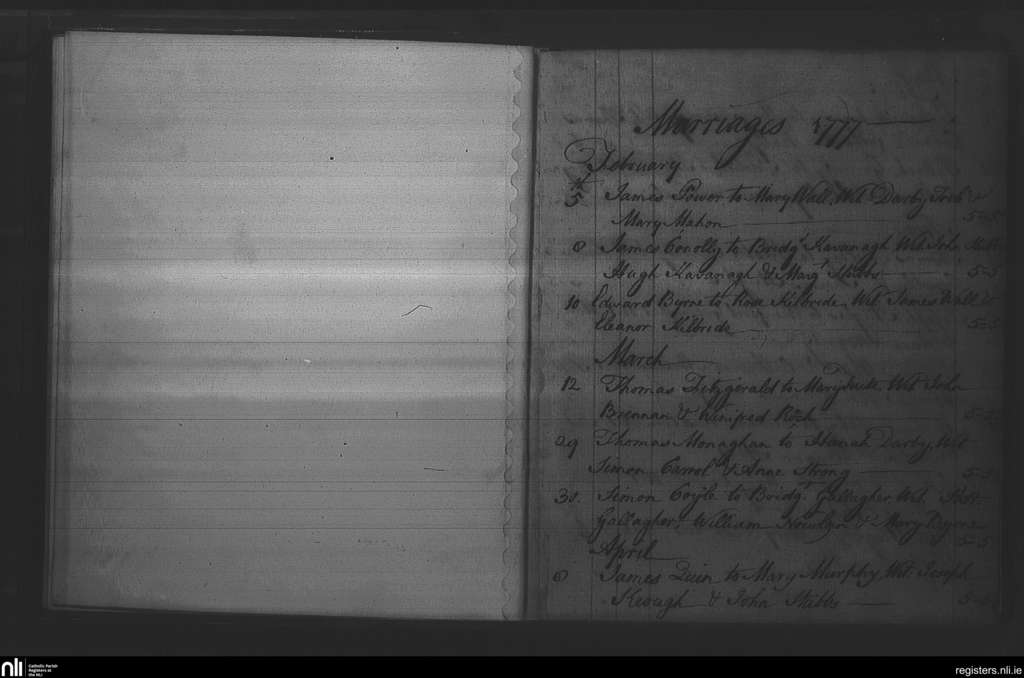 Marriages 1777
February
5 James Power to Mary Wall, Wit Darby &
Mary Mahon 5-5
8 James Conolly to Bridgt Kavanagh Wit John
Hugh Kavanagh & Margt Stubbs 5-5
10 Edward Byrne to Rose Kilbride, Wit James Wall &
Eleanor Kilbride 5-5
March
12 Thomas Fitzgerald to Mary Wit John
Brennan & Winifred Roch
29 Thomas Monaghan to Hanah Darby, Wit
Simon Carrol & Anne Strong 5-5
30. Simon Coyle to Bridgt Gallagher Wit.
Gallagher, William Nowlan & Mary Byrne
5-5
April
James Quin to Mary Murphy Wit Joseph
Keough & John Stubbs
nli
Catholic Parish
Registers at
the NLI
registers.nli.ie